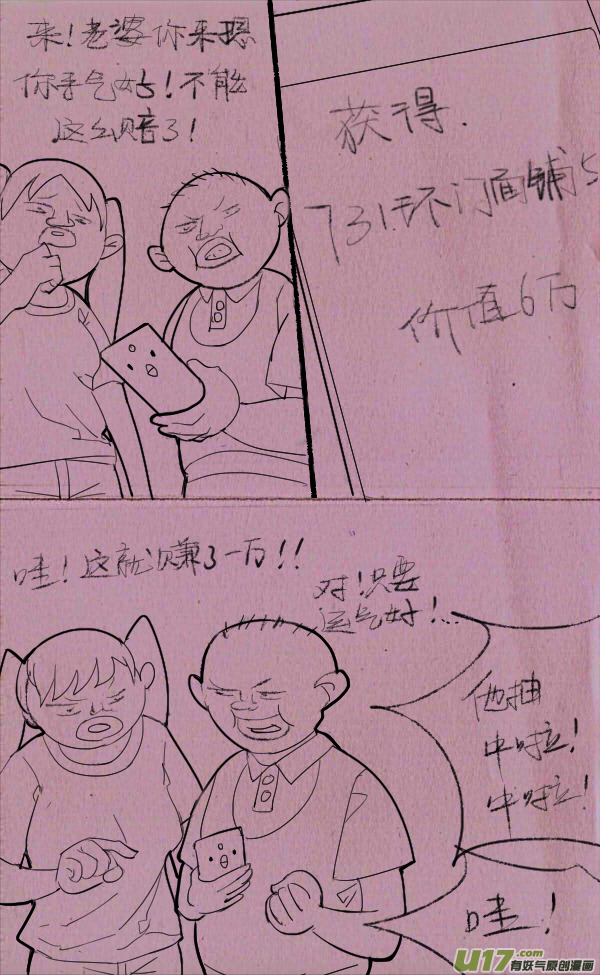 来！老婆你来摁
你手气好！不能
这么赔了！
获得.
731环门面铺5
价值6万
哇！这就赚了一万！！
对！只要
运气好！...
他抽
中啦！
中啦！
哇！
U17.com
有妖气原创漫画